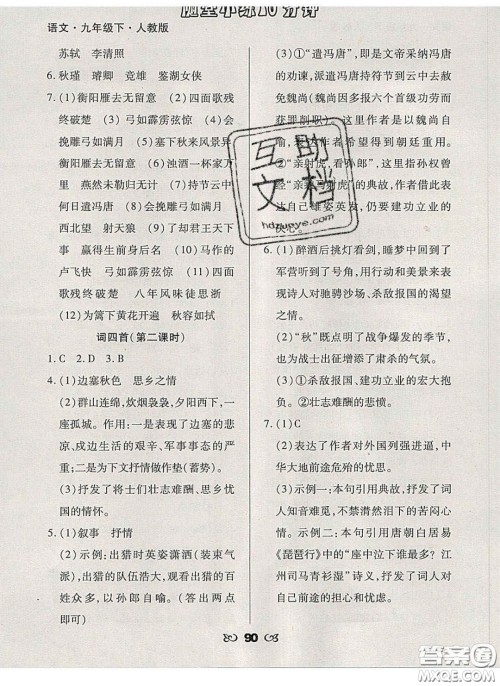 随堂小练10分钟
语文·九年级下·人教版
苏轼 李清照
6. 秋瑾 璿卿 竞雄 鉴湖女侠
7. (1)衡阳雁去无留意 (2)四面歌残
终破楚 (3)弓如霹雳弦惊 (4)会
挽雕弓如满月 (5)塞下秋来风景异
衡阳雁去无留意 (6)浊酒一杯家万
里 燕然未勒归无计 (7)持节云中
何日遣冯唐 (8)会挽雕弓如满月
西北望 射天狼 (9)了却君王天下
事 赢得生前身后名 (10)马作的
卢飞快 弓如霹雳弦惊 (11)四面
歌残终破楚 八年风味徒思浙
(12)为篱下黄花开遍 秋容如拭
词四首(第二课时)
1. C 2. D 3. B
4. (1)边塞秋色 思乡之情
(2)群山连绵,炊烟袅袅,夕阳西下,一
座孤城。作用:一是表现了边塞的悲
凉、戍边生活的艰辛、军事事态的严
峻;二是为下文抒情做作垫(蓄势)。
(3)抒发了将士们壮志难酬、思乡忧
国的情怀。
5. (1)叙事 抒情
(2)示例:出猎时英姿潇洒(装束气
派),出猎的队伍浩大,观看出猎的百
姓众多,以孙郎自喻。(答出两点
即可)
(3)①“遣冯唐”:文帝采纳冯唐
的劝谏,派遣冯唐持符节到云中去赦
免魏尚(魏尚因多报六个首级功劳而
获罪削职)。
作者希望得到朝廷重用。
②“亲射虎,看孙郎”,这里指孙权曾
经“亲射虎”的典故,作者借此表
达自己雄姿英发,仍要建功立业的
决心。
6. (1)醉酒后挑灯看剑,睡梦中回到了
军营听到了号角,用行动和美景来表
现诗人对驰骋沙场、杀敌报国的渴望
之情。
(2)“秋”既点明了战争爆发的季节,
也为战士出征创造了肃杀的气氛。
(3)①杀敌报国、建功立业的宏大抱
负。②壮志难酬的悲愤。
7. (1)C
(2)表达了作者对外国列强进逼,中
华大地前途危殆的忧思。
(3)示例一:本句引用典故,抒发了词
人知音难觅,不禁颓然泪下的苦闷心
情。示例二:本句引用唐朝白居易
《琵琶行》中的“座中泣下谁最多?江
州司马青衫湿”诗义,抒发了词人对
自己前途的担心和忧虑。
90
互助文档
hdzuoye.com
答案圈
MXQE.COM